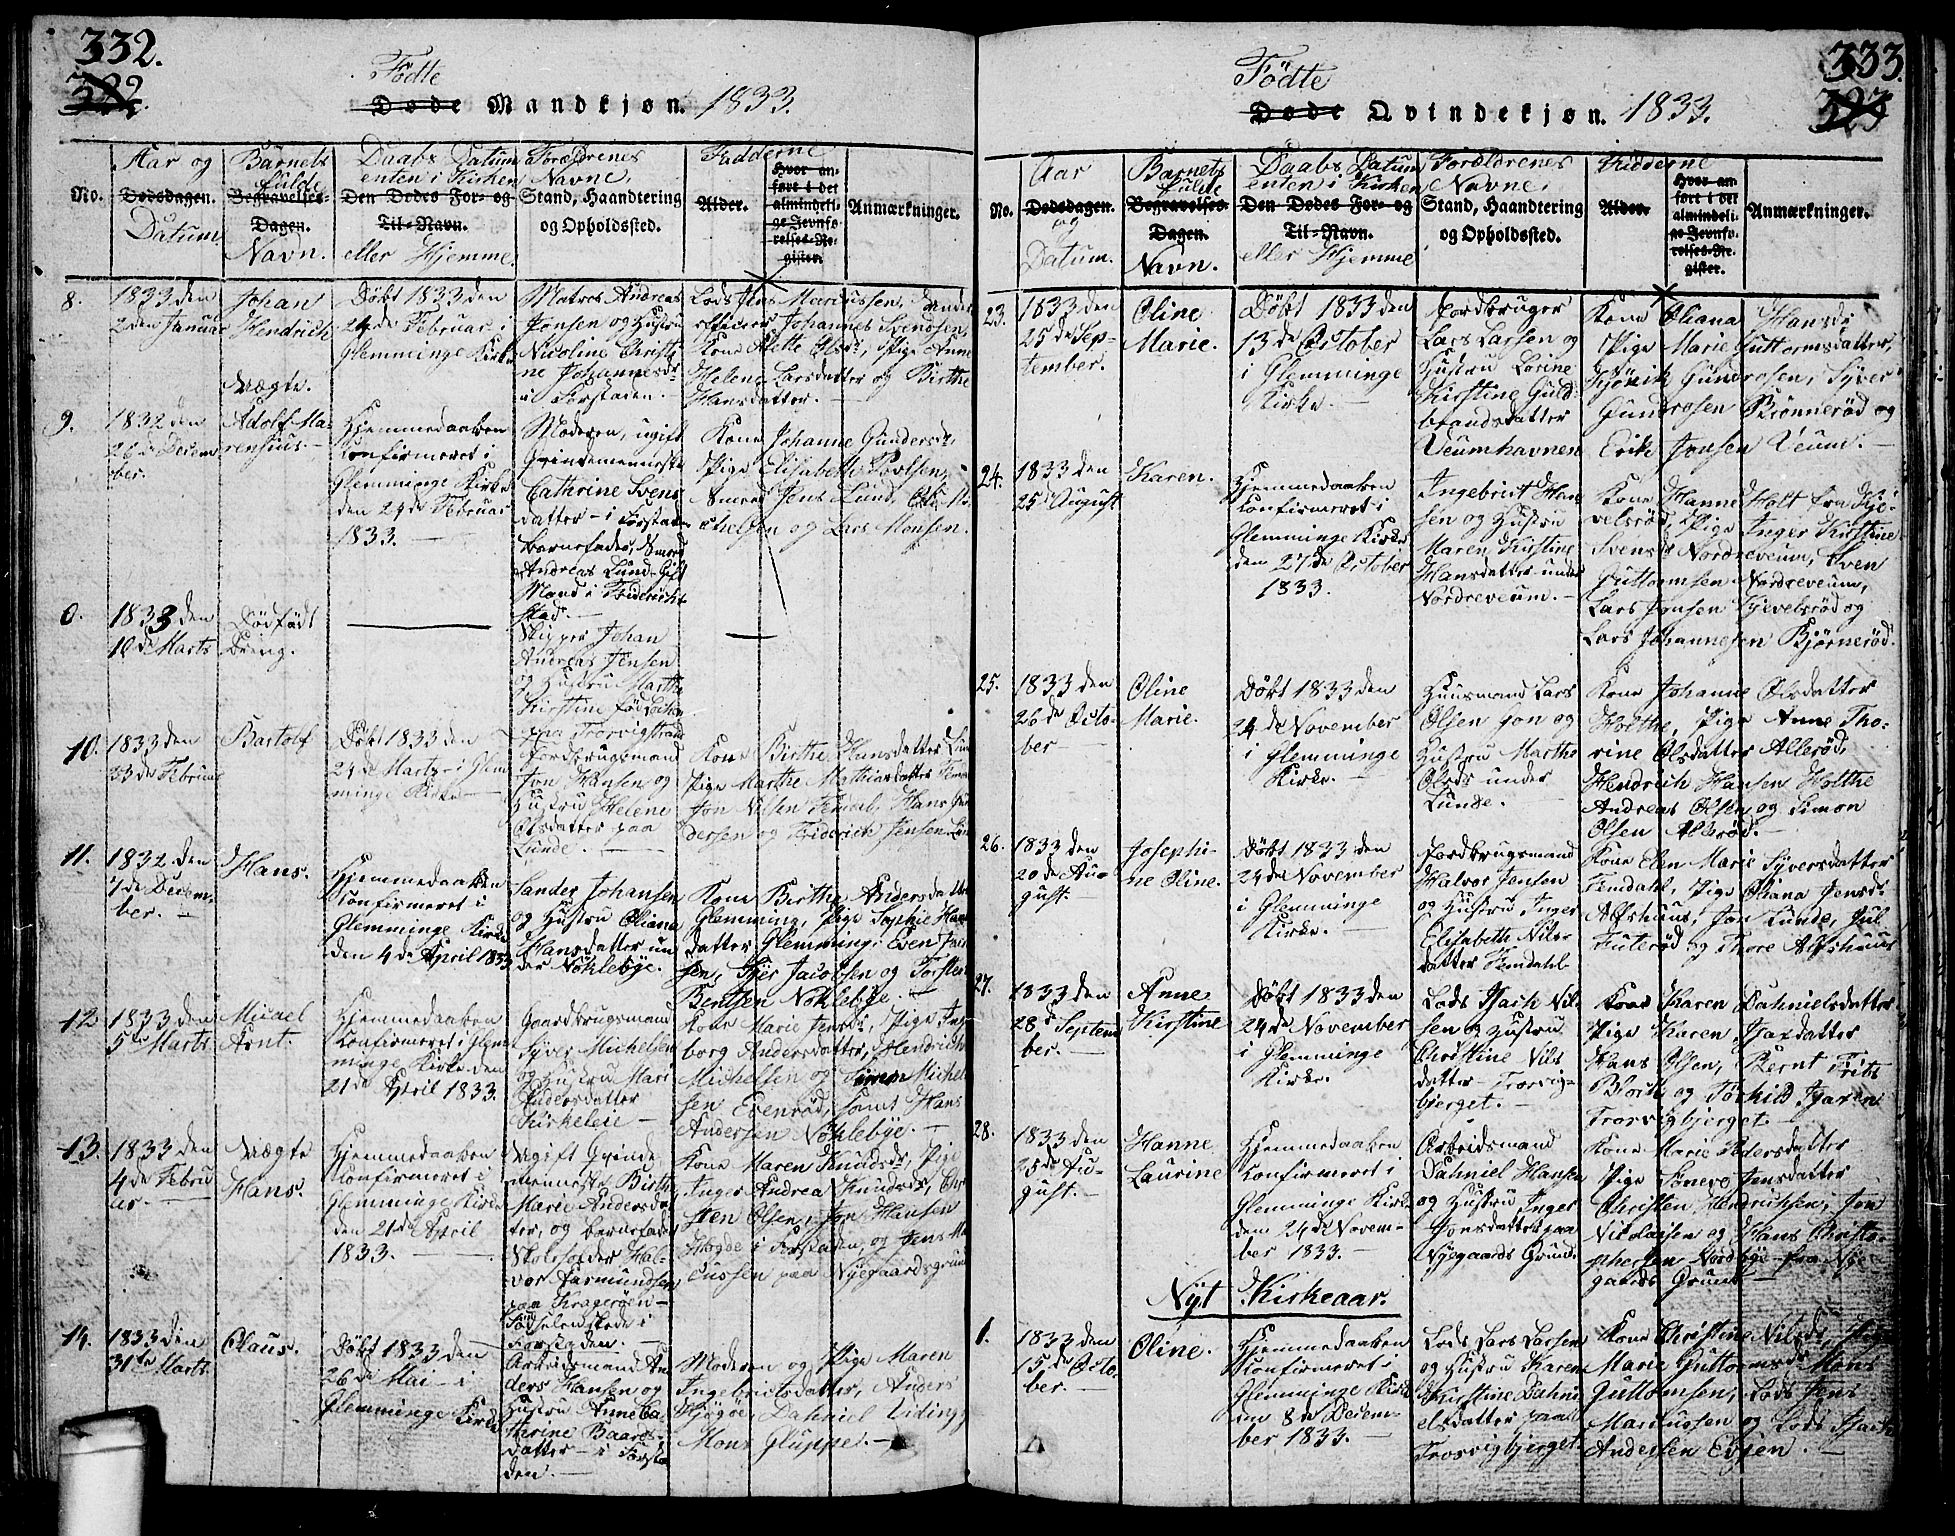 332.
322.
Fødte
Døde Mandkjøn. 1833.
No.
Aar og
Dødsdagen.
Datum
Barnets
fulde
Begravelses-
Dagen.
Navn.
Daabs Datum
enten i Kirken
Den Dødes For- og
Til-Navn.
eller Hjemme.
Forældrenes
Navne,
Stand, Haandtering
og Opholdssted.
Fadderne
Alder.
Hvor an-
ført i det
almindeli-
ge Jevnfø-
relses-Re-
gister.
Anmærkninger.
8.
1833 den
2den Januar
Johan
Hendrich
Døbt 1833 den
24de Februar i
Glemminge Kirke
Matros Andreas
Jonsen og Hustru
Nicoline Christi-
ne Johannesdr
i Forstaden.
Lods Jens Mariussen, Under-
officeer Johannes Svendsen,
Kone Alette Olsdr, Pige Anne
Helene Larsdatter og Birthe
Hansdatter.
9.
1832 den
26de Decem
ber.
Uægte.
Adolf Ma-
rensius
Hjemmedaaben
Confirmeret i
Glemminge Kirke
den 24de Februar
1833.
Moderen, ugift
Qvindemenneske
Cathrine Svens
datter i Forstaden
Barnefader, Smed
Andreas Lund Gift
Mand i Fridrichs
stad.
Kone Johanne Gundersdr,
Pige Elisabeth Poulsen,
Smed Jens Lund, Ole Mi-
chelsen og Lars Monsen.
0.
1833 den
10de Marts
Dødfødt
Dreng.
Skipper Johan
Andreas Jensen
og Hustru Marthe
Kirstine fød
paa Trosvigstrand
10.
1833 den
23de Februar
Bartolf
Døbt 1833 den
24de Marts i Glem
minge Kirke
Jordbrugsmand
Jon Hansen og
Hustru Helene
Olsdatter paa
Lunde.
Kone Birthe Hansdatter Lund
Pige Marthe Mathiasdatter Femd
Jon Nilsen Femdal, Hans Gun
dersen og Friderich Jensen Lund
11.
1832 den
7de Decem-
ber.
Hans.
Hjemmedaaben
Confirmeret i
Glemminge Kirke
den 4de April 1833
Sander Johansen
og Hustru Oliana
Hansdatter un
der Nøklebye.
Kone Birthe Andersdatter
Glemming, Pige Sophie Hans
datter Glemming, Even
sen, Gjer Jacobsen og Torsten
Bentsen Nøklebye.
12
1833 den
5de Marts
Micael
Arnt.
Hjemmedaaben
Confirmeret i Glem
minge Kirke den
21de April 1833.
Gaardbrugsmand
Syver Michelsen
og Hustru Mari
Andersdatter
Kirkeleie
Kone Marie Jensdr, Pige Inge
borg Andersdatter, Hendrich
Michelsen og Simon Michel
sen Evenrød, samt Hans
Andersen Nøklebye.
13.
1833 den
4de Febru
ar.
Uægte
Hans.
Hjemmedaaben
Confirmeret i
Glemminge Kirke
den 21de April
1833.
Ugift Qvinde
menneske Birthe
Marie Andersdat
ter, og barnefader
Skoleholder Hal-
vor Aasmundsen
paa Kragerøen
Fødselsmelding i
Forstaden.
Kone Maren Knudsdr, Pige
Inger Andrea Knudsdr, Chri
sten Olsen, Jon Hansen
Hogde i Forstaden, og Jens M
cussen paa Nyegaardsgrund
14.
1833 den
31te Marts
Claus.
Døbt 1833 den
26de Mai i
Glemminge Kirke
Arbeidsmand An-
ders Hansen og
Hustru Anne Ca-
thrine Baars-
datter i Forsta
den.
Moderen og Pige Maren
Ingebrietsdatter, Anders
Hjøgøe, Dahniel Viding
Mons Gluppe.
333
323
Fødte
Døde Qvindekjøn. 1833.
No.
Aar
Dødsdagen.
og
Datum.
Barnets
fulde
Begravelses-
Dagen.
Navn.
Daabs Datum
enten i Kirken
Den Dødes For- og
Til-Navn.
eller Hjemme
Forældrenes
Navne,
Stand, Haandtering
og Opholdssted.
Fadderne
Alder.
Hvor an-
ført i det
almindeli-
ge Jevnfø-
relses-Re-
gister.
Anmærkninger.
23.
1833 den
25de Sep-
tember.
Oline
Marie.
Døbt 1833 den
13de October
i Glemminge
Kirke.
Jordbruger
Lars Larsen og
Hustru Lorine
Kirstine Guld-
brandsdatter
Veumhavnen
Kone Oliana Hansdr
Pige Marie Guttormsdatter,
Kjønik Gundrosen, Syver
Gundrosen Brønnerød og
Erik Jonsen Veum.
24.
1833 den
25de August
Karen.
Hjemmedaaben
Confirmeret i
Glemminge Kirke
den 27de October
1833.
Ingebrict Han
sen og Hustru
Maren Kirstine
Hansdatter under
Nordreveum.
Kone Hanne Holt fra Kje-
velsrød, Pige Inger Kirstine
Svensdr Nordreveum, Sven
Guttormsen Nordreveum,
Lars Jonsen Kjevelsrød og
Lars Johannesen Bjørnerød.
25.
1833 den
26de Octo-
ber
Oline
Marie.
Døbt 1833 den
24de November
i Glemminge
Kirke.
Huusmand Lars
Olsen Hon og
Hustru Marthe
Olsdr under
Lunde.
Kone Johanne Olsdatter
Holthe, Pige Anne Tho-
rine Olsdatter Allerød,
Hendrich Hansen Holthe
Andreas Olsen og Simon
Olsen Allerød.
26.
1833 den
20de Au-
gust.
Josephi-
ne Oline.
Døbt 1833 den
24de November
i Glemminge
Kirke.
Jordbrugsmand
Halvor Jensen
og Hustru Inger
Elisabeth Nils-
datter Femdahl
Kone Elen Marie Syversdatter
Femdahl, Pige Oliana Jensdr
Alfshuus, Jon Lunde, Juul
Futerød og Thore Alfshuus
27.
1833 den
28de Septem
ber.
Anne
Kirstine
Døbt 1833 den
24de November
i Glemminge
Kirke.
Lods Isach Nil-
sen og Hustru
Christine Nils
datter Trosvig-
bjerget.
Kone Karen Dahnielsdatter
Pige Karen Isaxdatter
Hans Olsen, Bernt Frits
Blorth og Tørkild Isaxen
Trosvigbjerget.
28.
1833 den
25de Au-
gust.
Hanne
Laurine
Hjemmedaaben
Confirmeret i
Glemminge Kirke
den 24de Novem-
ber 1833.
Arbeidsmand
Dahniel Hansen
og Hustru Inger
Jonsdatter paa
Nyegaards Grund.
Kone Marie Pedersdatter
Pige Sneve Jensdatter
Christen Hendrichsen, Jon
Nikolaisen og Hans Christo-
phersen Nordbye fra Nye-
gaards Grund
Nyt Kirkeaar.
1.
1833 den
15de Octo
ber.
Oline.
Hjemmedaaben
Confirmeret i
Glemminge Kirke
den 8de Decem-
ber 1833.
Lods Lars Larsen
og Hustru Karen
Kirstine Dahni
elsdatter paa
Trosvigbjerget.
Kone Christine Nilsdr, Pige
Marie Guttormsdr Mons
Guttormsen, Lods Jens
Mariussen og Lods Isach
Andersen Evjen.